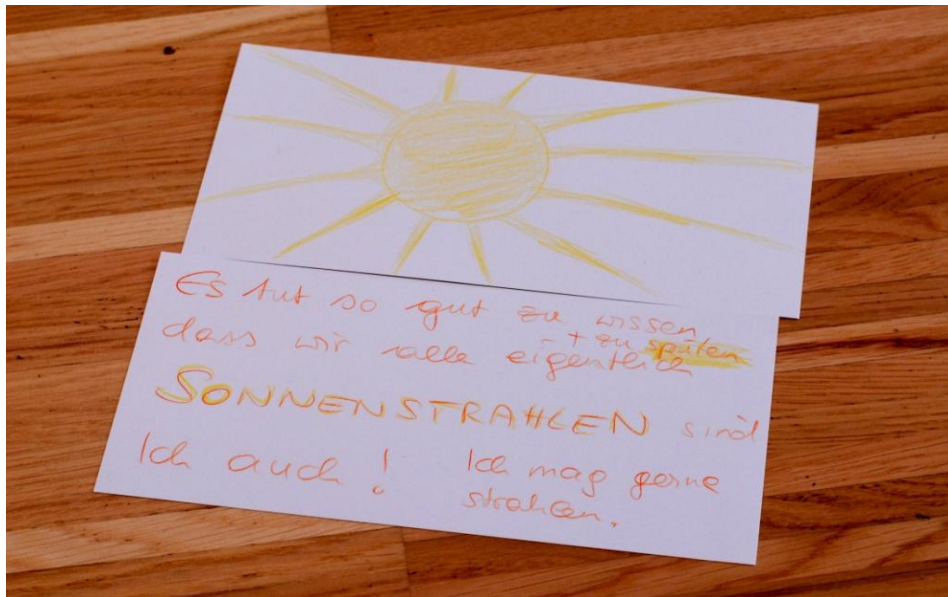 Es tut so gut zu wissen
+ zu spüren
dass wir alle eigentlich
SONNENSTRAHLEN sind
Ich auch! Ich mag gerne
strahlen.